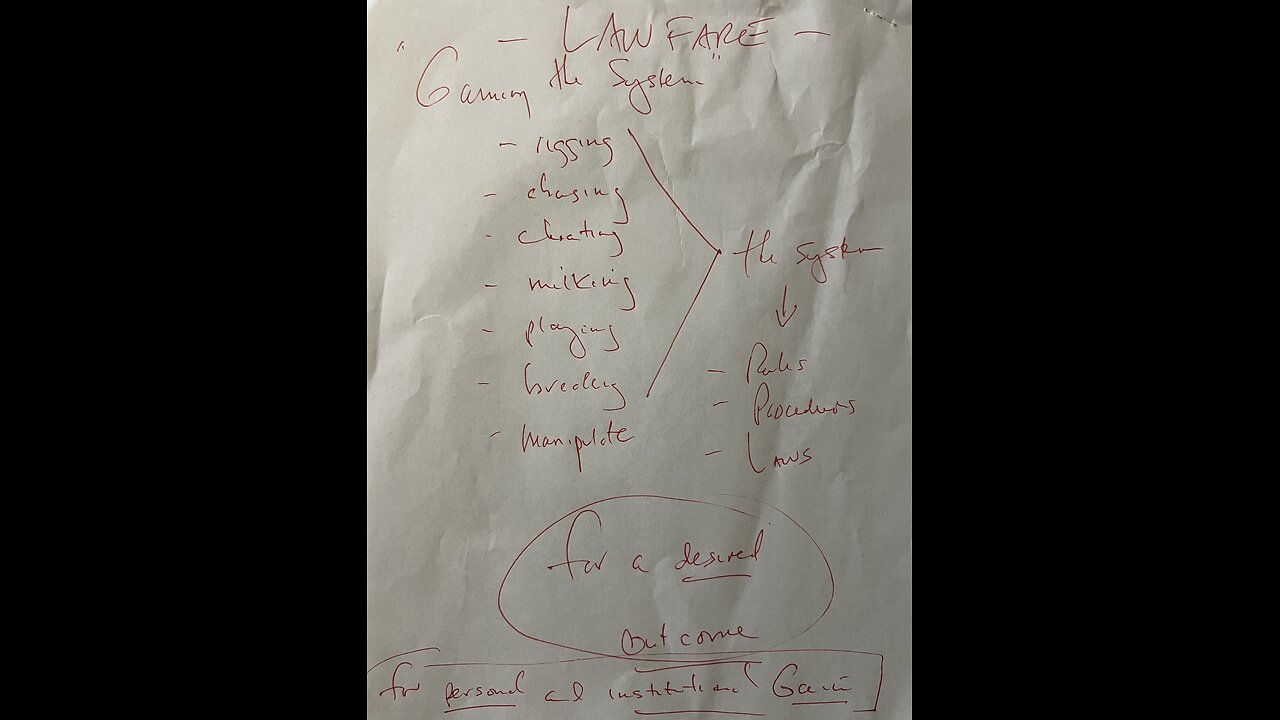 — LAWFARE —
"Gaming the System"
- rigging
- chasing
- cheating
- milking
- playing
- breaking
- manipulate
the system
- Rules
- Procedures
- Laws
for a desired
outcome
for personal and institutional Gain